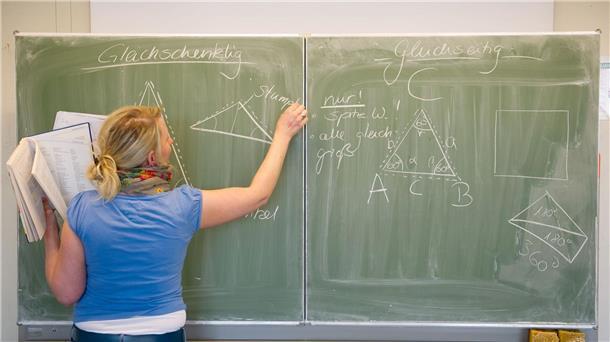 Gleichschenklig
Stump
Gleichseitig
nur!
• spitze W.!
• alle gleich
groß
C
60°
γ
b
a
α
β
60°
60°
A
c
B
180°
180°
360°